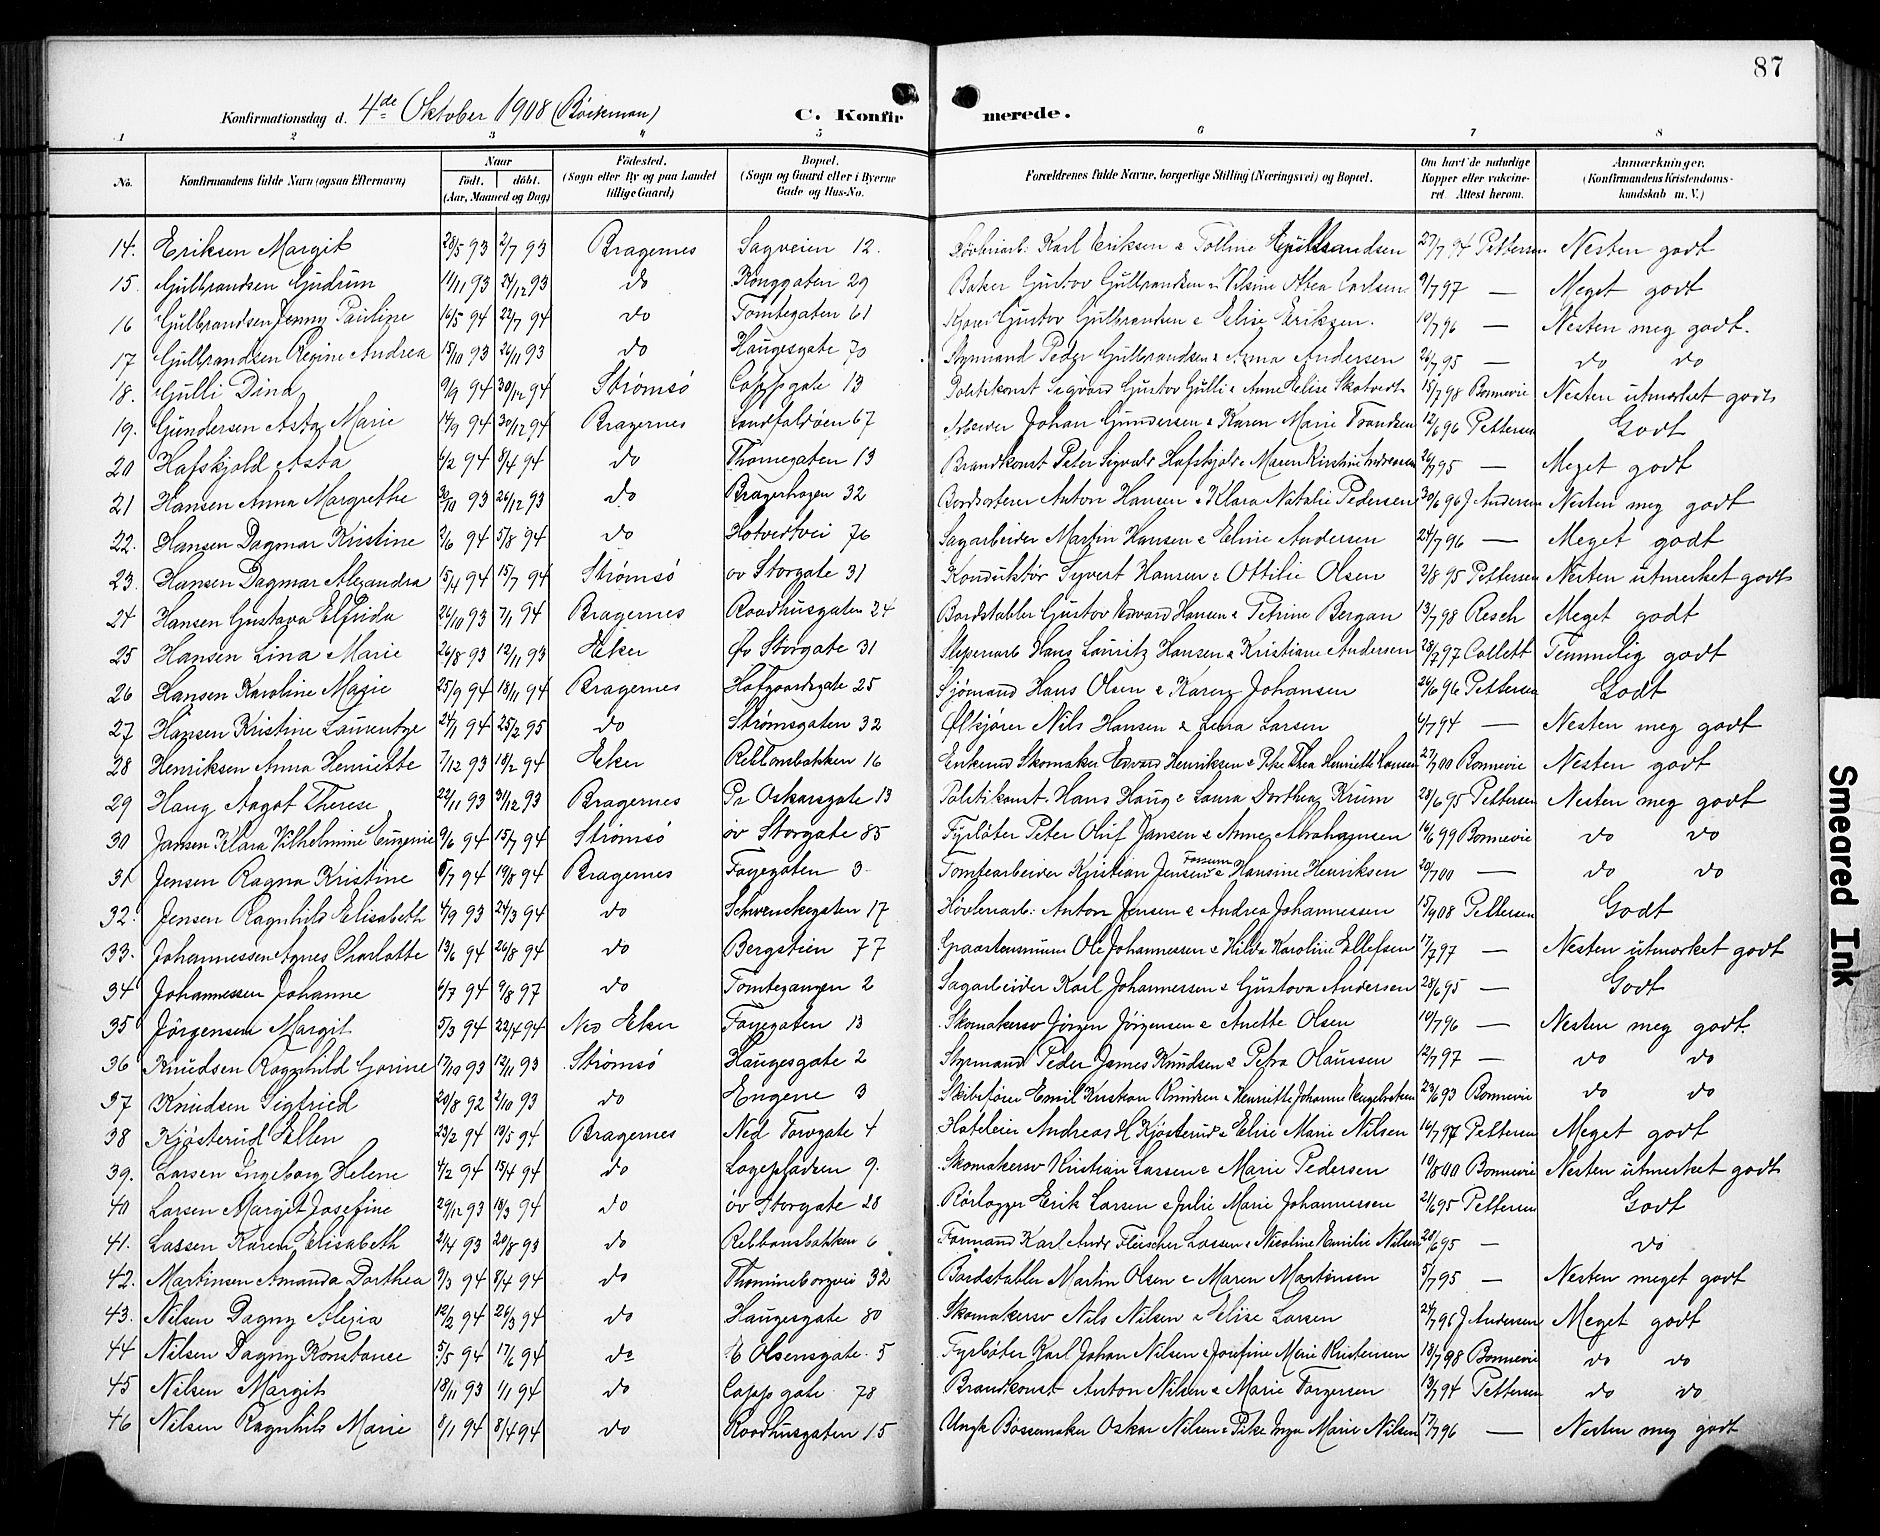 87
Konfirmationsdag d. 4de Oktober 1908 (Böckman) C. Konfir merede.
1 2 3 " 5 6 7 8
No. Konfirmandens fulde Navn (ogsaa Efternavn) Naar födt. döbt. (Aar, Maaned og Dag) Födested. (Sogn eller By og paa Landet tillige Gaard) Bopæl. (Sogn og Gaard eller i Byerne Gade og Hus-No. Forældrenes fulde Navne, borgerlige Stilling (Næringsvei) og Bopæl. Om havt de naturlige Kopper eller vakcineret. Attest herom. Anmærkninger. (Konfirmandens Kristendomskundskab m. V.)
14. Eriksen Margit 28/5 93 2/7 93 Bragernes Sagveien 12. Karl Eriksen & 27/7 94 Pettersen Nesten godt
15. Gulbrandsen Gudrun 14/11 93 24/12 93 do Konggaten 29 Baker Gustav Gulbrandsen & Carlsen 9/7 97 — Meget godt
16 Gulbrandsen Jenny Pauline 16/5 94 22/7 94 do Tomtegaten 61 Gustav Gulbrandsen & Elise Eriksen. 19/7 96 — Nesten meg godt.
17 Gulbrandsen Regine Andrea 15/10 93 26/11 93 do Haugesgate 70 Styrmand Peder Gulbrandsen & Anna Andersen 26/7 95 — do do
18. Gulli Dina 9/9 94 30/12 94 Strømsö Cappsgate 13 Politikonst Sigvard Gustav Gulli & Anne Elise Skotvedt 15/7 98 Bonnevie Nesten utmerket godt
19. Gundersen Asta Marie 14/9 94 30/12 94 Bragernes Landfaldöen 67 Arbeider Johan Gundersen & Karen Marie Trondsen 12/6 96 Pettersen Godt
20 Hafskjold Asta 6/2 94 8/4 94 do Thornegaten 13 Brandkonst Peter Sigvald Hafskjold & Maren Kirstine Andreasen 26/7 95 — Meget godt
21 Hansen Anna Margrethe 30/10 93 26/12 93 do Bragerhagen 32 Bordsorterer Anton Hansen & Klara Natalie Pedersen 30/6 96 J Andersen Nesten meg godt
22. Hansen Dagmar Kristine 2/6 94 5/8 94 do Hotvedtvei 76 Sagarbeider Martin Hansen & Eline Andersen 24/7 96 — Meget godt
23. Hansen Dagmar Alexandra 15/4 94 15/7 94 Strömsö öv Storgate 31 Konduktör Syvert Hansen & Ottilie Olsen 2/8 95 Pettersen Nesten utmerket godt
24 Hansen Gustava Elfrida 26/10 93 7/1 94 Bragernes Raadhusgaten 24 Bordstabler Gustav Edvard Hansen & Petrine Bergan 13/7 98 Resch Meget godt
25 Hansen Lina Marie 26/8 93 12/11 93 Eker Øv Storgate 31 Sliperiarb Hans Lauritz Hansen & Kristiane Andersen 28/7 97 Collett Temmelig godt
26 Hansen Karoline Marie 25/9 94 18/11 94 Bragernes Hafgaardsgate 25 Sjömand Hans Olsen & Karen Johansen 26/6 96 Pettersen Godt
27 Hansen Kristine Laurentze 24/1 94 25/2 95 do Strömsgaten 32 Ølkjörer Nils Hansen & Lena Larsen 6/7 94 — Nesten meg godt
28 Henriksen Anna Henriette 7/12 93 18/2 94 Eker Rebbansbakken 16 Enkemd Skomaker Edvard Henriksen & Pike Thea Henriette Hansen 27/7 00 Bonnevie Nesten godt
29 Haug Aagot Therese 22/11 93 31/12 93 Bragernes Pr Oskarsgate 13 Politikonst. Hans Haug & Laura Dorthea Krum 28/6 95 Pettersen Nesten meg godt
30 Jansen Klara Vilhelmine Eugenie 9/6 94 15/7 94 Strömsö öv Storgate 85 Fyrböter Peter Oluf Jansen & Anne Abrahamsen 16/6 99 Bonnevie do do
31 Jensen Ragna Kristine 8/7 94 19/8 94 Bragernes Fayegaten 3. Tomtearbeider Kristian Jensen Fossum & Hansine Henriksen 20/7 00 — do do
32. Jensen Ragnhild Elisabeth 4/9 93 24/3 94 do Schwenckegaten 17 Hövleriarb: Anton Jensen & Andrea Johannessen 15/9 08 Pettersen Godt
33. Johannessen Agnes Charlotte 13/6 94 26/8 94 do Bergstien 77 Graastensmurer Ole Johannessen & Hilda Karoline Ellefsen 17/7 97 — Nesten utmerket godt
34 Johannessen Johanne 6/7 94 9/8 97 do Tomtegangen 2 Sagarbeider Karl Johannessen & Gustava Andersen 28/6 95 — Godt
35 Jörgensen Margit 5/3 94 22/4 94 Ned Eker Fayegaten 13 Skomakersv Jörgen Jörgensen & Anette Olsen 10/7 96 — Nesten meg godt.
36 Knudsen Ragnhild Gorine 17/10 93 12/11 93 Strömsö Haugesgate 2 Styrmand Peder James Knudsen & Petra Olaussen 12/7 97 — do do
37 Knudsen Sigfried 20/8 92 2/10 93 do Engene 3 Skibsförer Emil Kristian Knudsen & Henriette Johanne Engebretsen 23/6 93 Bonnevie do do
38 Kjösterud Ellen 23/2 94 19/5 94 Bragernes Ned Torvgate 4 Hoteleier Andreas H Kjösterud & Elise Marie Nilsen 14/7 97 Pettersen Meget godt
39. Larsen Ingeborg Helene 4/2 94 15/4 94 do Logepladsen 9. Skomakersv Kristian Larsen & Marie Pedersen 10/8 00 Bonnevie Nesten utmerket godt
40 Larsen Margit Josefine 29/12 93 18/3 94 do öv Storgate 28 Rörlegger Erik Larsen & Julie Marie Johannessen 21/6 95 Pettersen Godt
41. Lassen Karen Elisabeth 2/4 93 20/8 93 do Rebbansbakken 6 Formand Karl Andr Fleischer Lassen & Nicoline Emilie Nilsen 20/6 95 — do
42. Martinsen Amanda Dorthea 9/3 94 8/4 94 do Thornineborgvei 32 Bordstabler Martin Olsen & Maren Martinsen 5/7 95 — Nesten meget godt
43. Nilsen Dagny Alexia 12/2 94 26/3 94 do Haugesgate 80 Skomakersv Nils Nilsen & Elise Larsen 24/7 96 J Andersen Meget godt
44 Nilsen Dagny Konstance 5/5 94 17/6 94 do H Olsensgate 5 Fyrböter Karl Johan Nilsen & Josefine Marie Kristensen 18/7 98 Bonnevie do do
45 Nilsen Margit 18/11 93 1/1 94 do Cappsgate 78 Brandkonst Anton Nilsen & Marie Torgersen 13/7 94 Pettersen do do
46 Nilsen Ragnhild Marie 8/1 94 8/4 94 do Raadhusgaten 15 Ungk Bössemaker Oskar Nilsen & Pike Inga Marie Nilsen 17/7 96 — Nesten meg godt
Smeared Ink